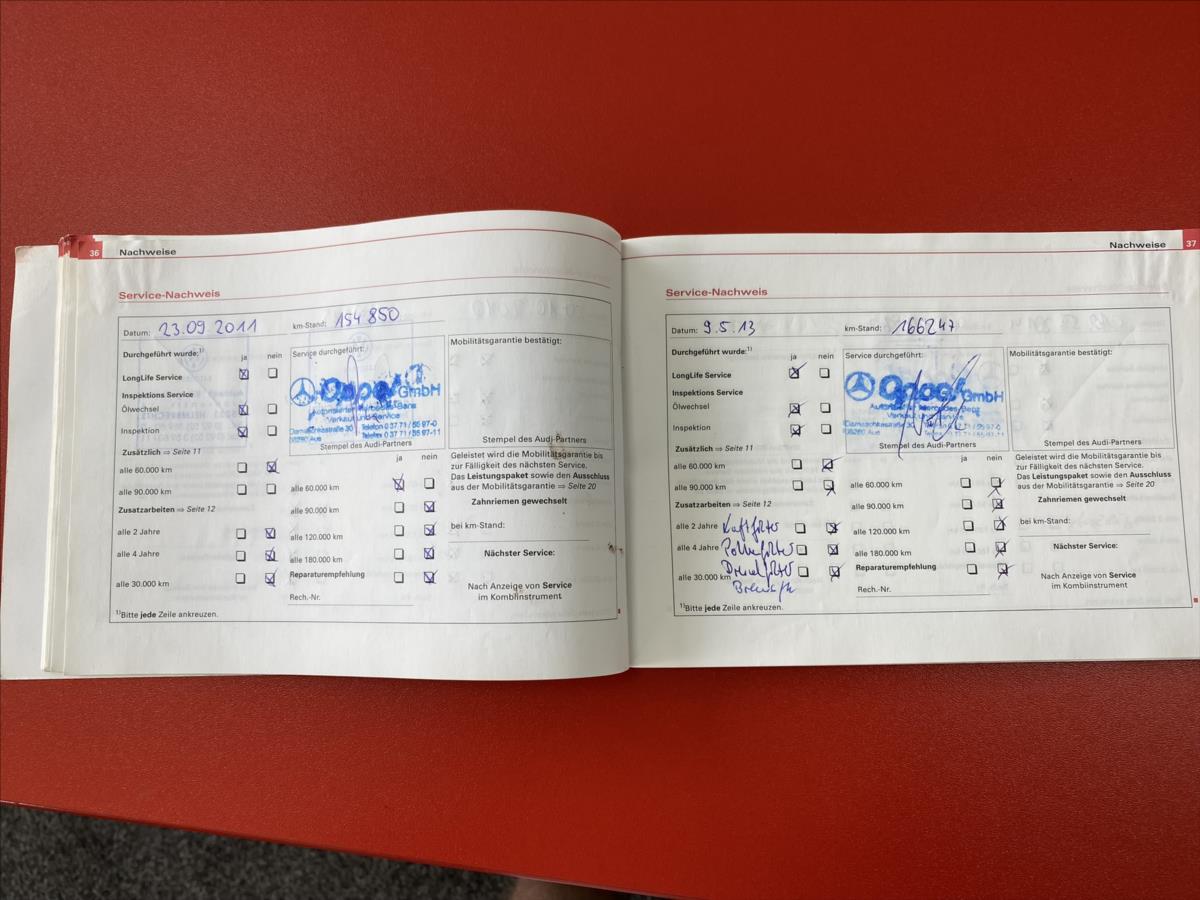 36 Nachweise
Service-Nachweis
Datum: 23.09.2011 km-Stand: 154 850
Durchgeführt wurde:1) ja nein
LongLife Service
Inspektions Service
Ölwechsel
Inspektion
Zusätzlich ⇒ Seite 11
alle 60.000 km
alle 90.000 km
Zusatzarbeiten ⇒ Seite 12
alle 2 Jahre
alle 4 Jahre
alle 30.000 km
1)Bitte jede Zeile ankreuzen.
Service durchgeführt:
GmbH
Autorisierter Mercedes-Benz
Verkauf und Service
Telefon 0 37 71 / 55 97-0
08280 Aue Telefax 0 37 71 / 55 97-11
Stempel des Audi-Partners
ja nein
alle 60.000 km
alle 90.000 km
alle 120.000 km
alle 180.000 km
Reparaturempfehlung
Rech.-Nr.
Mobilitätsgarantie bestätigt:
Stempel des Audi-Partners
Geleistet wird die Mobilitätsgarantie bis
zur Fälligkeit des nächsten Service.
Das Leistungspaket sowie den Ausschluss
aus der Mobilitätsgarantie ⇒ Seite 20
Zahnriemen gewechselt
bei km-Stand:
Nächster Service:
Nach Anzeige von Service
im Kombiinstrument
Nachweise 37
Service-Nachweis
Datum: 9.5.13 km-Stand: 166247
Durchgeführt wurde:1) ja nein
LongLife Service
Inspektions Service
Ölwechsel
Inspektion
Zusätzlich ⇒ Seite 11
alle 60.000 km
alle 90.000 km
Zusatzarbeiten ⇒ Seite 12
alle 2 Jahre Luftfilter
alle 4 Jahre Pollenfilter
alle 30.000 km
1)Bitte jede Zeile ankreuzen.
Service durchgeführt:
GmbH
Autorisierter Mercedes-Benz
Verkauf und Service
08280 Aue
Stempel des Audi-Partners
ja nein
alle 60.000 km
alle 90.000 km
alle 120.000 km
alle 180.000 km
Reparaturempfehlung
Rech.-Nr.
Mobilitätsgarantie bestätigt:
Stempel des Audi-Partners
Geleistet wird die Mobilitätsgarantie bis
zur Fälligkeit des nächsten Service.
Das Leistungspaket sowie den Ausschluss
aus der Mobilitätsgarantie ⇒ Seite 20
Zahnriemen gewechselt
bei km-Stand:
Nächster Service:
Nach Anzeige von Service
im Kombiinstrument